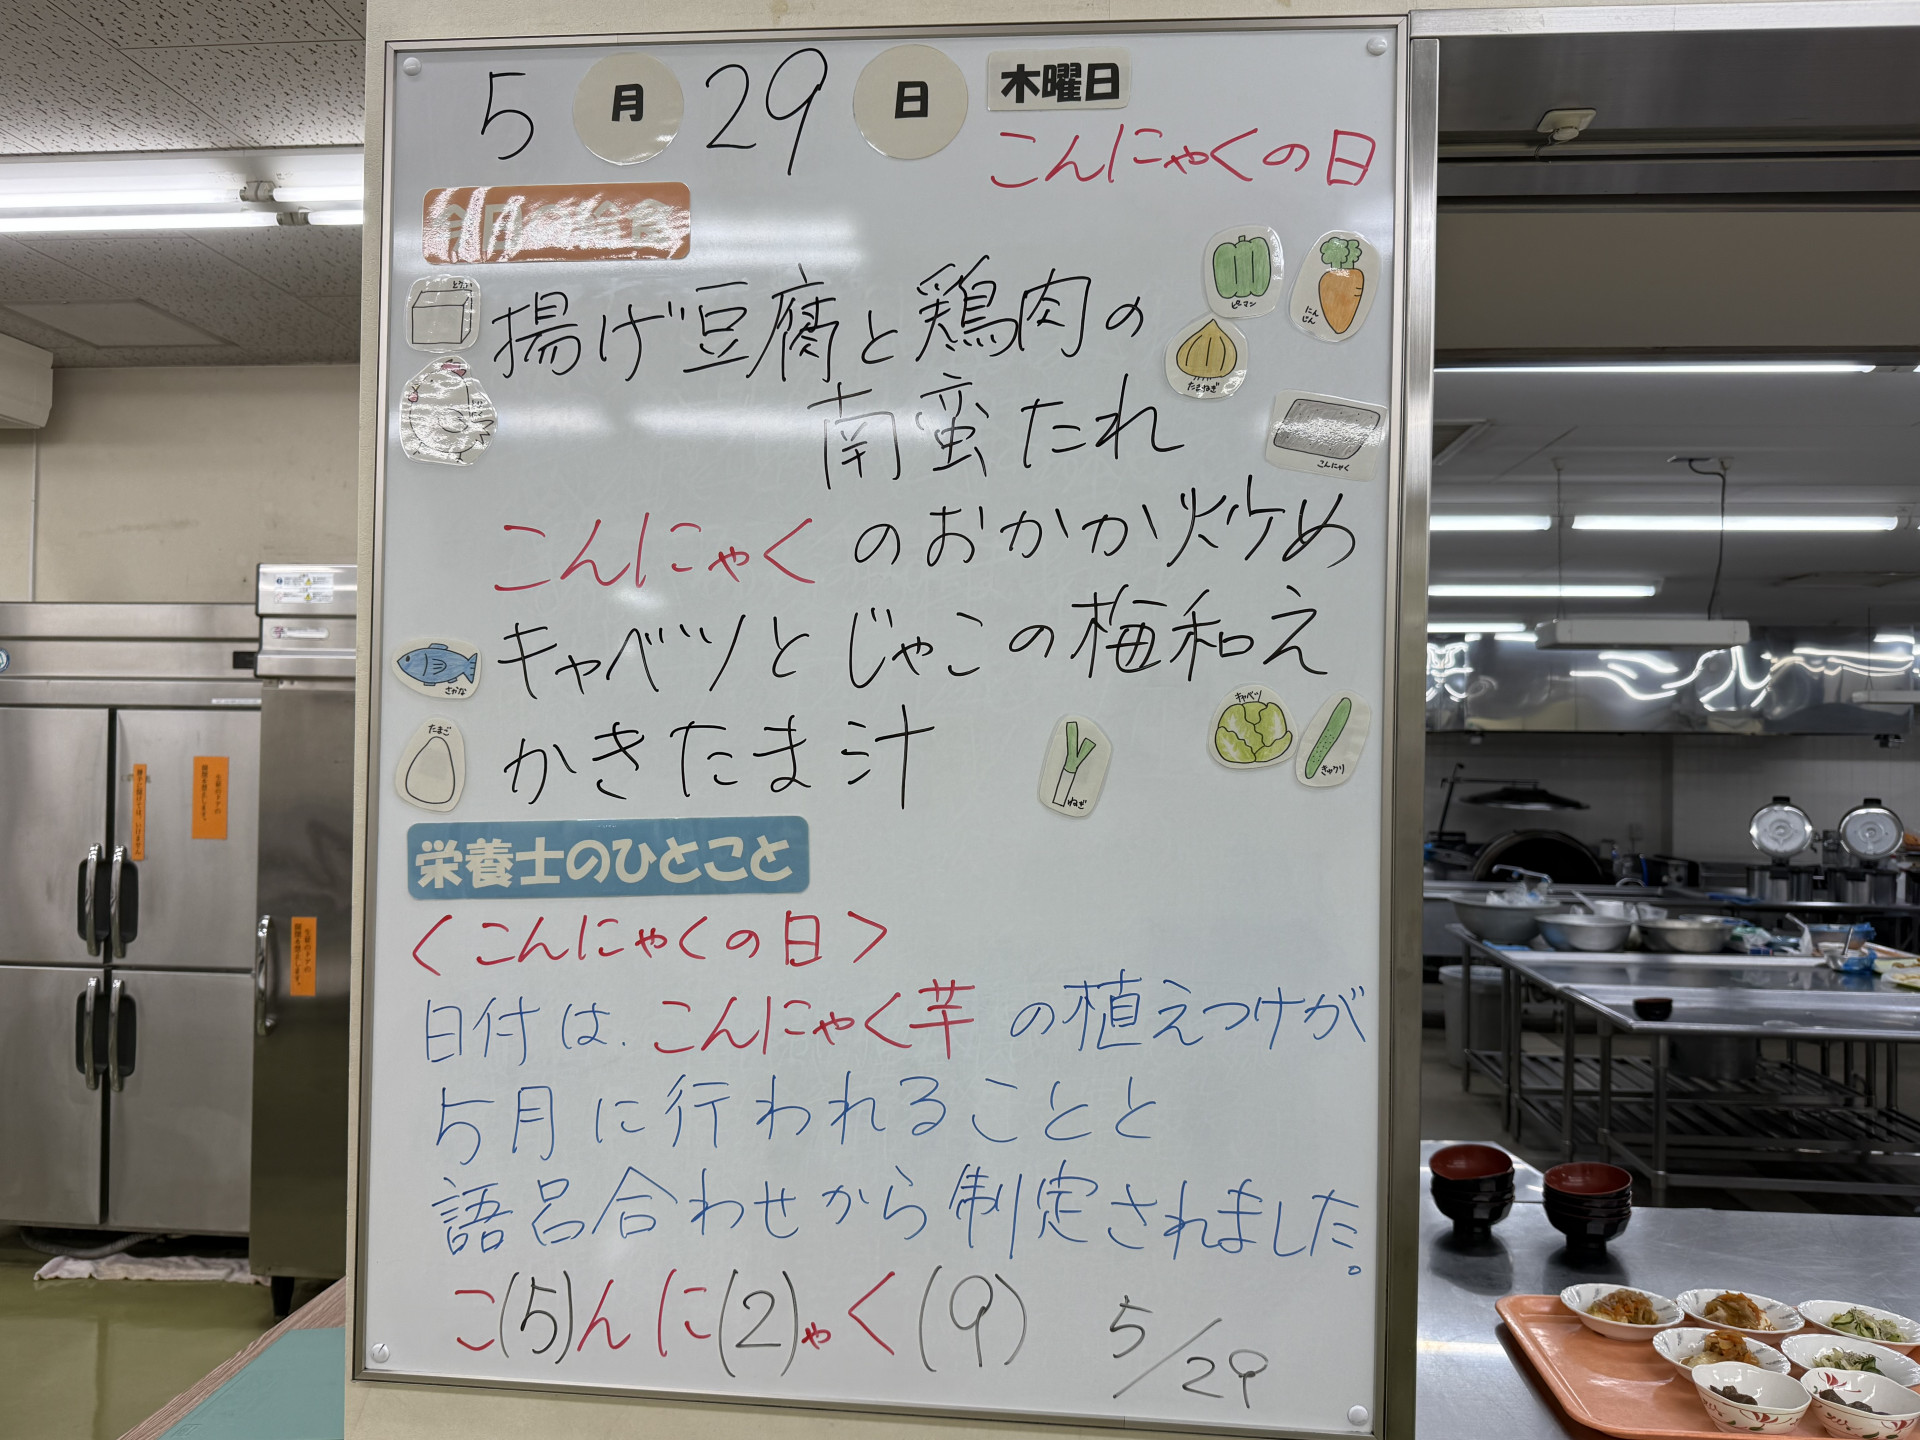 5月29日 木曜日
こんにゃくの日
今日の給食
とうふ
揚げ豆腐と鶏肉の
南蛮たれ
ピーマン
にんじん
たまねぎ
こんにゃく
こんにゃくのおかか炒め
キャベツとじゃこの梅和え
さかな
かきたま汁
たまご
ねぎ
キャベツ
きゅうり
栄養士のひとこと
<こんにゃくの日>
日付は、こんにゃく芋の植えつけが
5月に行われることと
語呂合わせから制定されました。
こ(5)んに(2)ゃく(9) 5/29